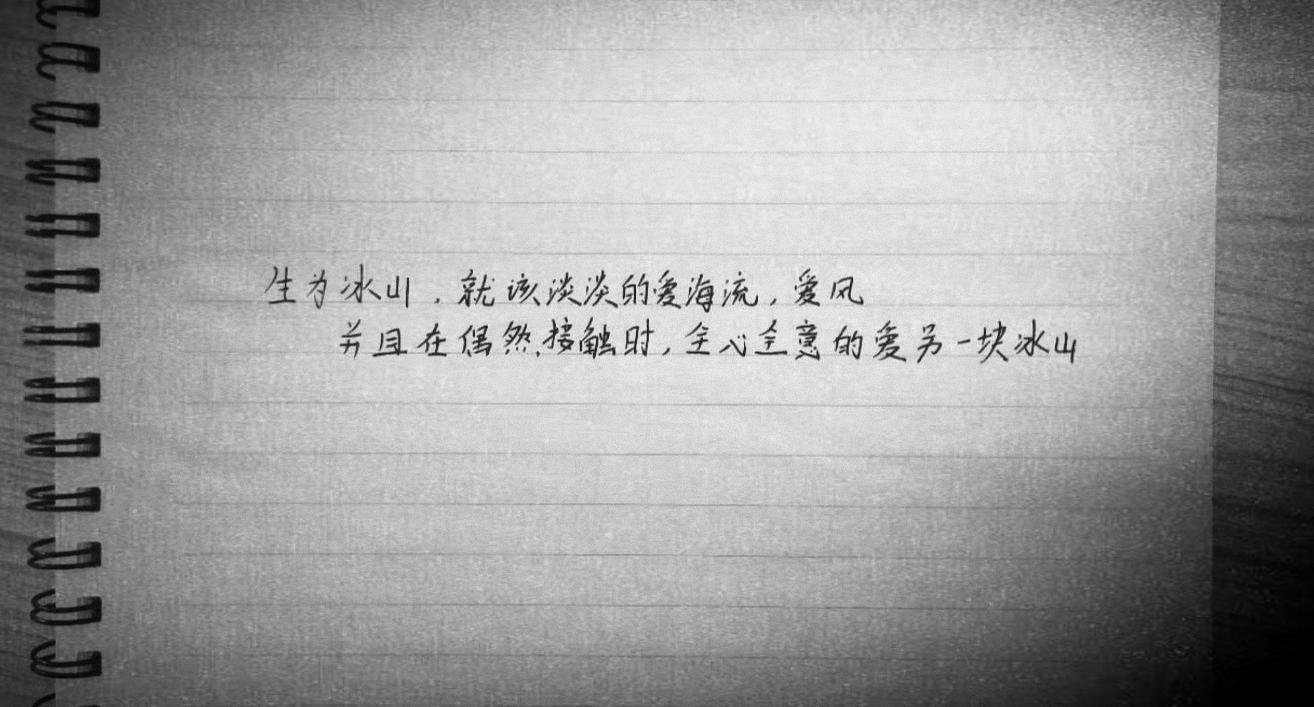 生为冰山，就该淡淡的爱海流，爱风
并且在偶然接触时，全心全意的爱另一块冰山